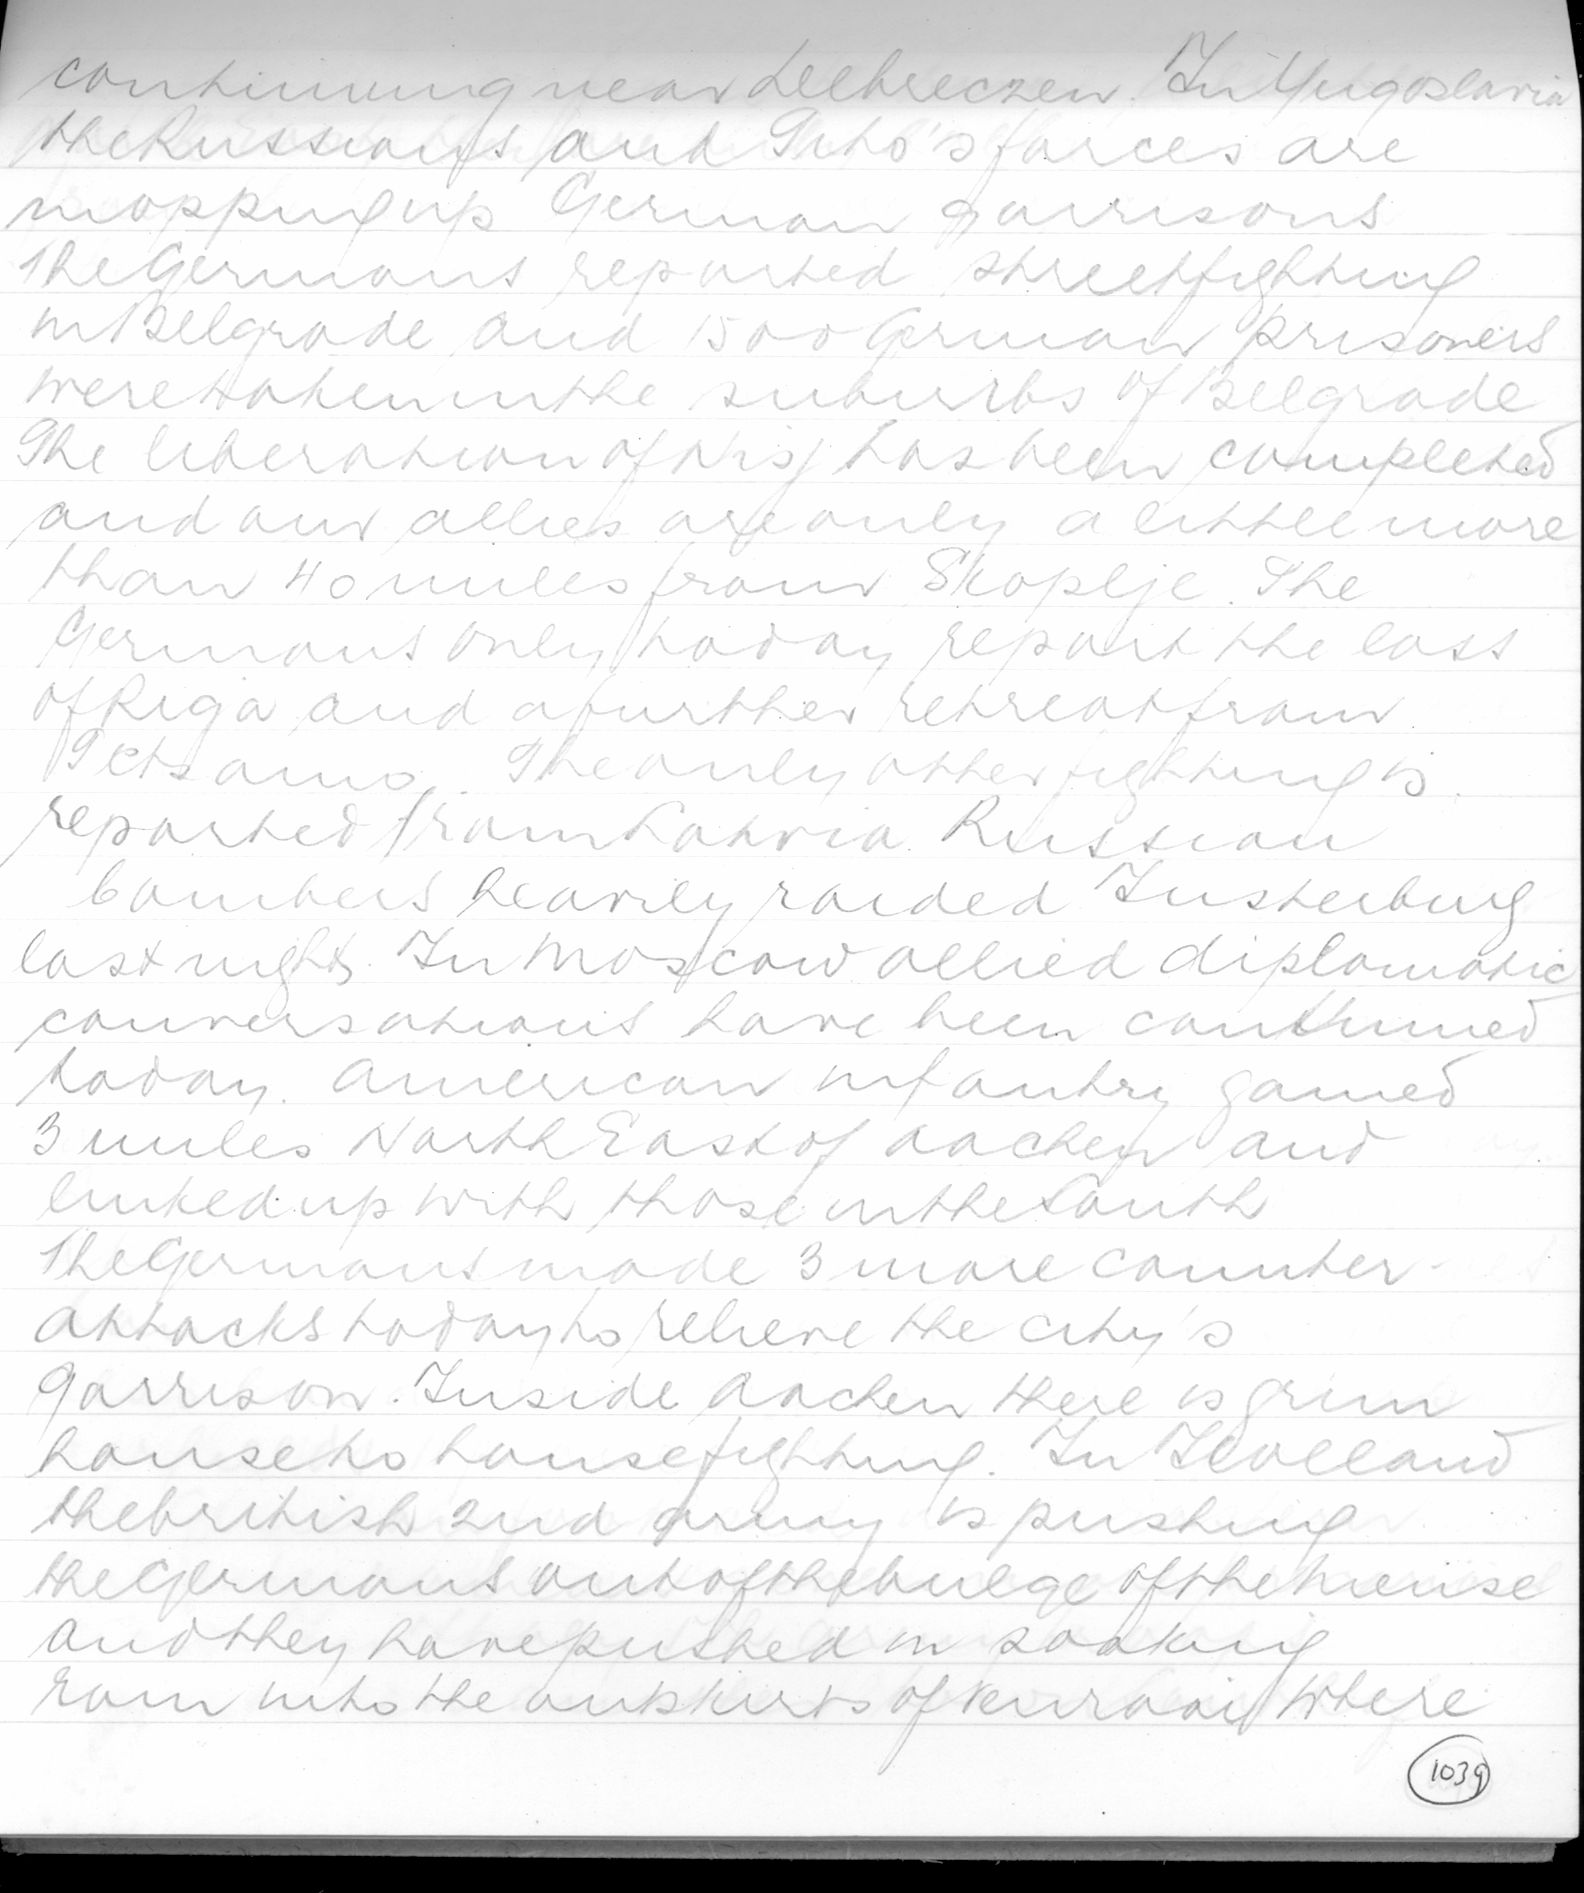 continuing near Debreczen. In Yugoslavia
the Russians and Tito's forces are
mopping up German garrisons
The Germans reported streetfighting
in Belgrade and 1500 German prisoners
were taken in the suburbs of Belgrade
The liberation of Nisj has been completed
and our allies are only a little more
than 40 miles from Skoplje. The
Germans only today report the loss
of Riga and a further retreat from
Petsamo. The only other fighting is
reported from Latvia. Russian
bombers heavily raided Insterburg
last night. In Moscow allied diplomatic
conversations have been continued
today. American infantry gained
3 miles North East of Aachen and
linked up with those in the South
The Germans made 3 more counter-
attacks today to relieve the city's
garrison. Inside Aachen there is grim
house to house fighting. In Holland
the british 2nd army is pushing
the Germans out of the bulge of the Meuse
and they have pushed on in soaking
rain into the outskirts of Venraai where
1039